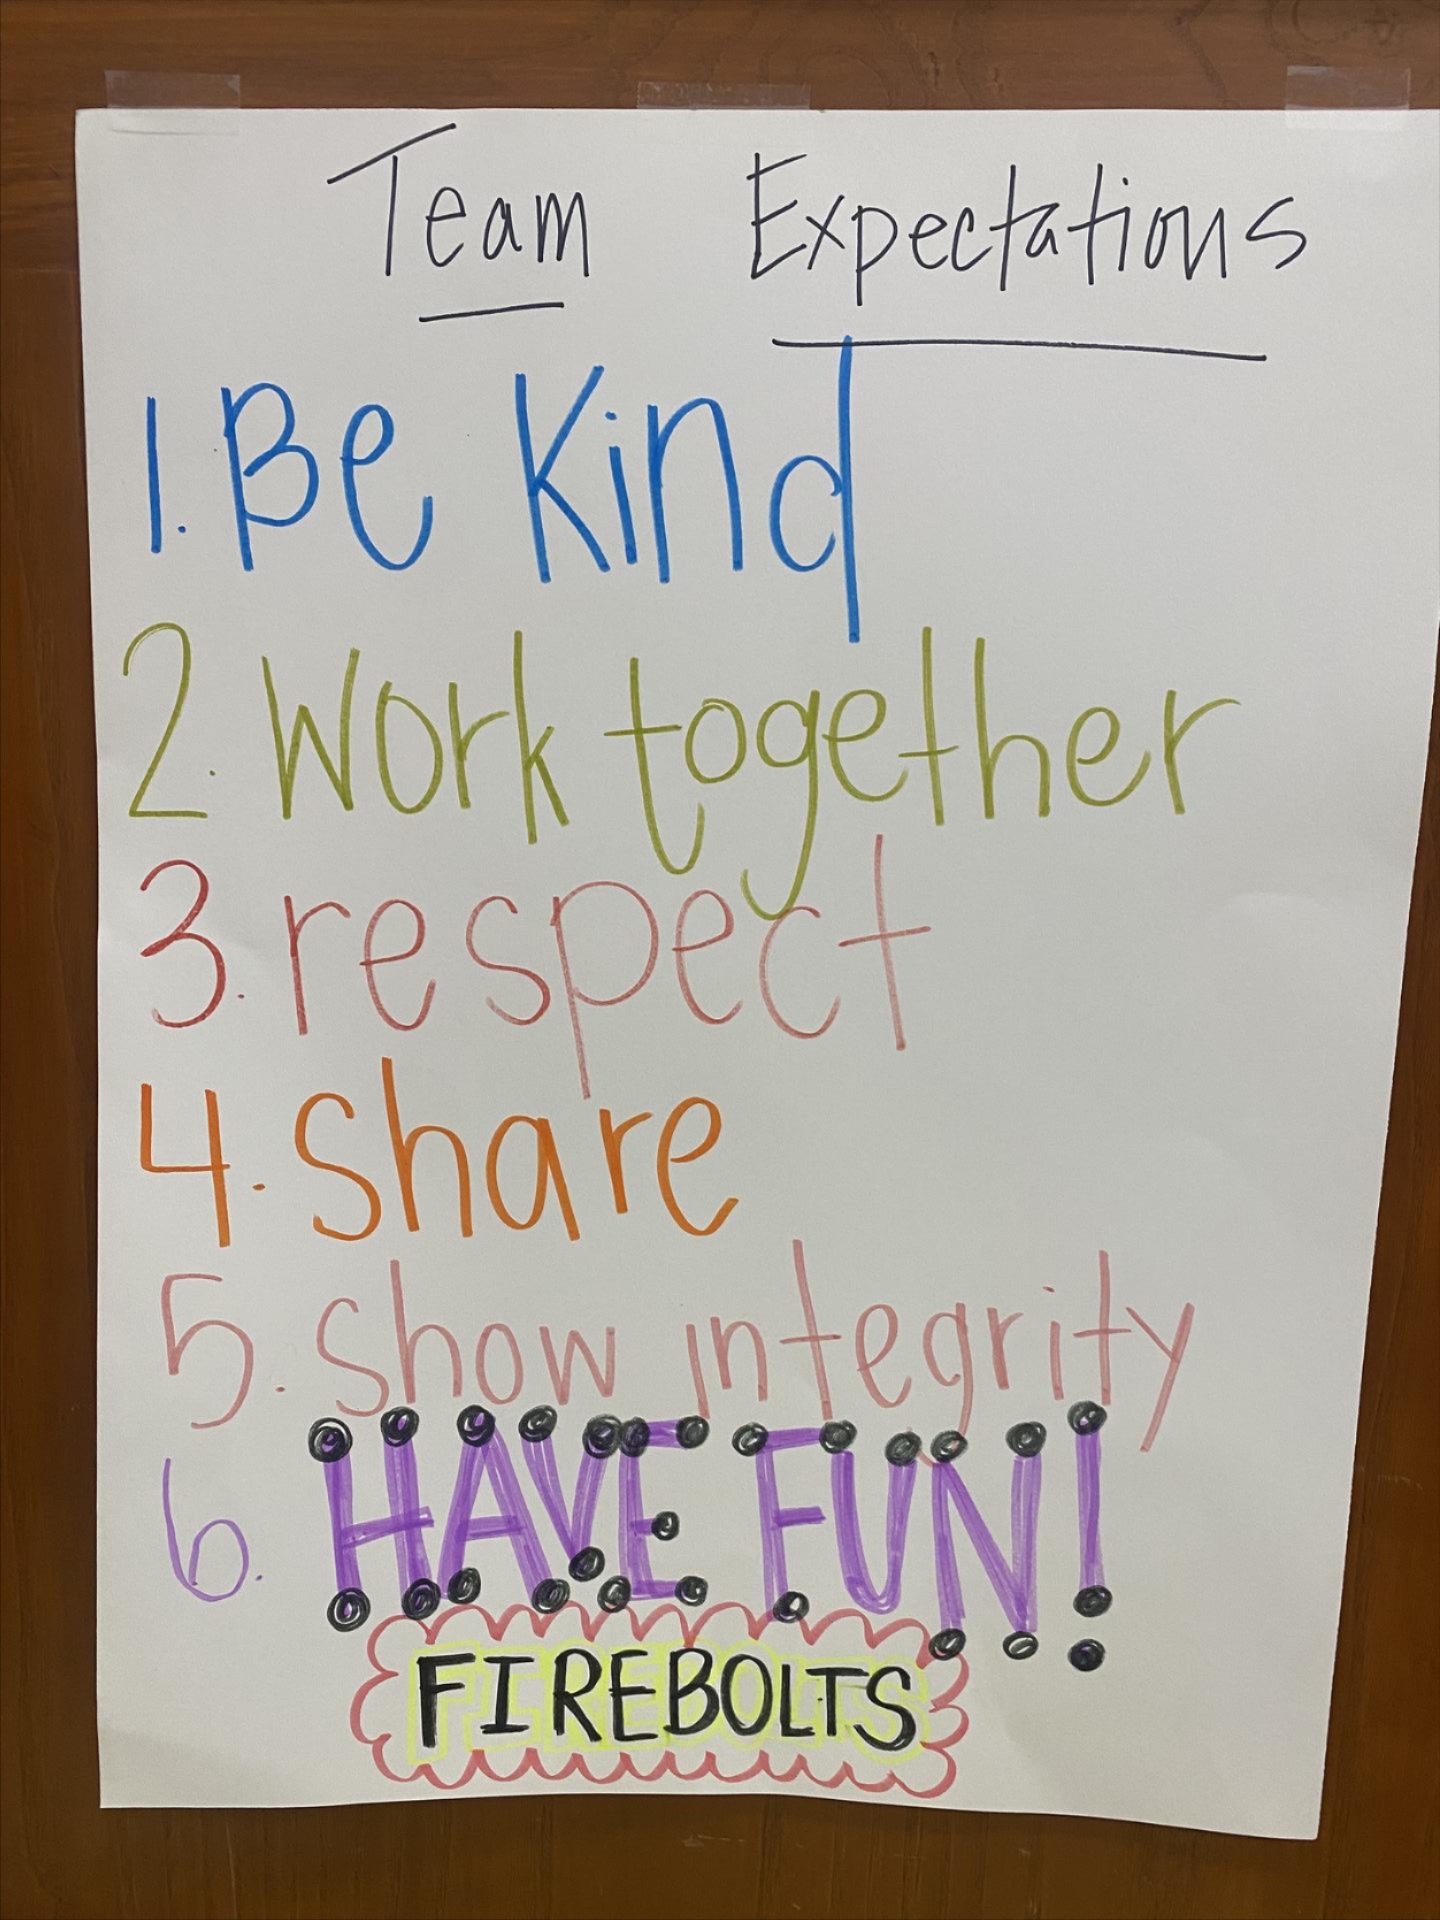 Team Expectations
1. Be Kind
2. Work together
3. respect
4. share
5. show integrity
6. HAVE FUN!
FIREBOLTS